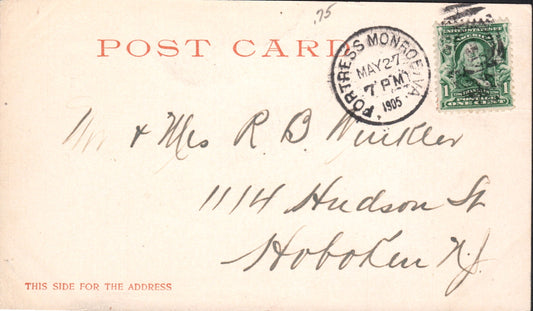 .75
POST CARD
FORTRESS MONROE, VA.
MAY 27
7 PM
1905
1 1
ONE CENT
Mr & Mrs R. B. Winkler
1114 Hudson St
Hoboken N.J.
THIS SIDE FOR THE ADDRESS